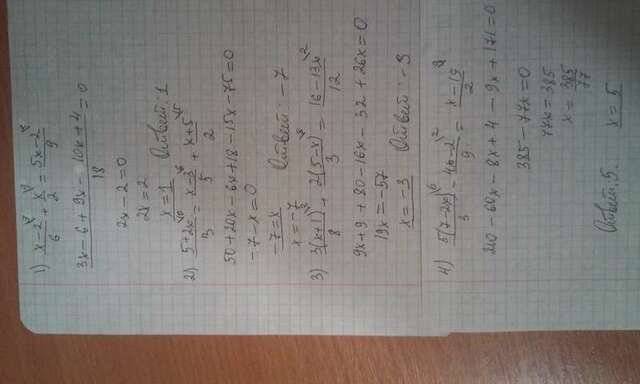 1) (x-2)/6 + x/2 = (5x-2)/9
(3x-6+9x-10x+4)/18 = 0
2x-2=0
2x=2
x=1 Ответ: 1
2) (5+2x)/3 = (x-3)/5 + (x+5)/2
50+20x-6x+18-15x-75=0
-7-x=0
-7=x
x=-7 Ответ: -7
3) 3(x+1)/8 + 2(5-x)/3 = (16-13x)/12
9x+9+80-16x-32+26x=0
19x=-57
x=-3 Ответ: -3
4) 5(7-2x)/3 - (4x-2)/9 = (x-19)/2
210-60x-8x+4-9x+171=0
385-77x=0
77x=385
x=385/77
x=5
Ответ: 5.